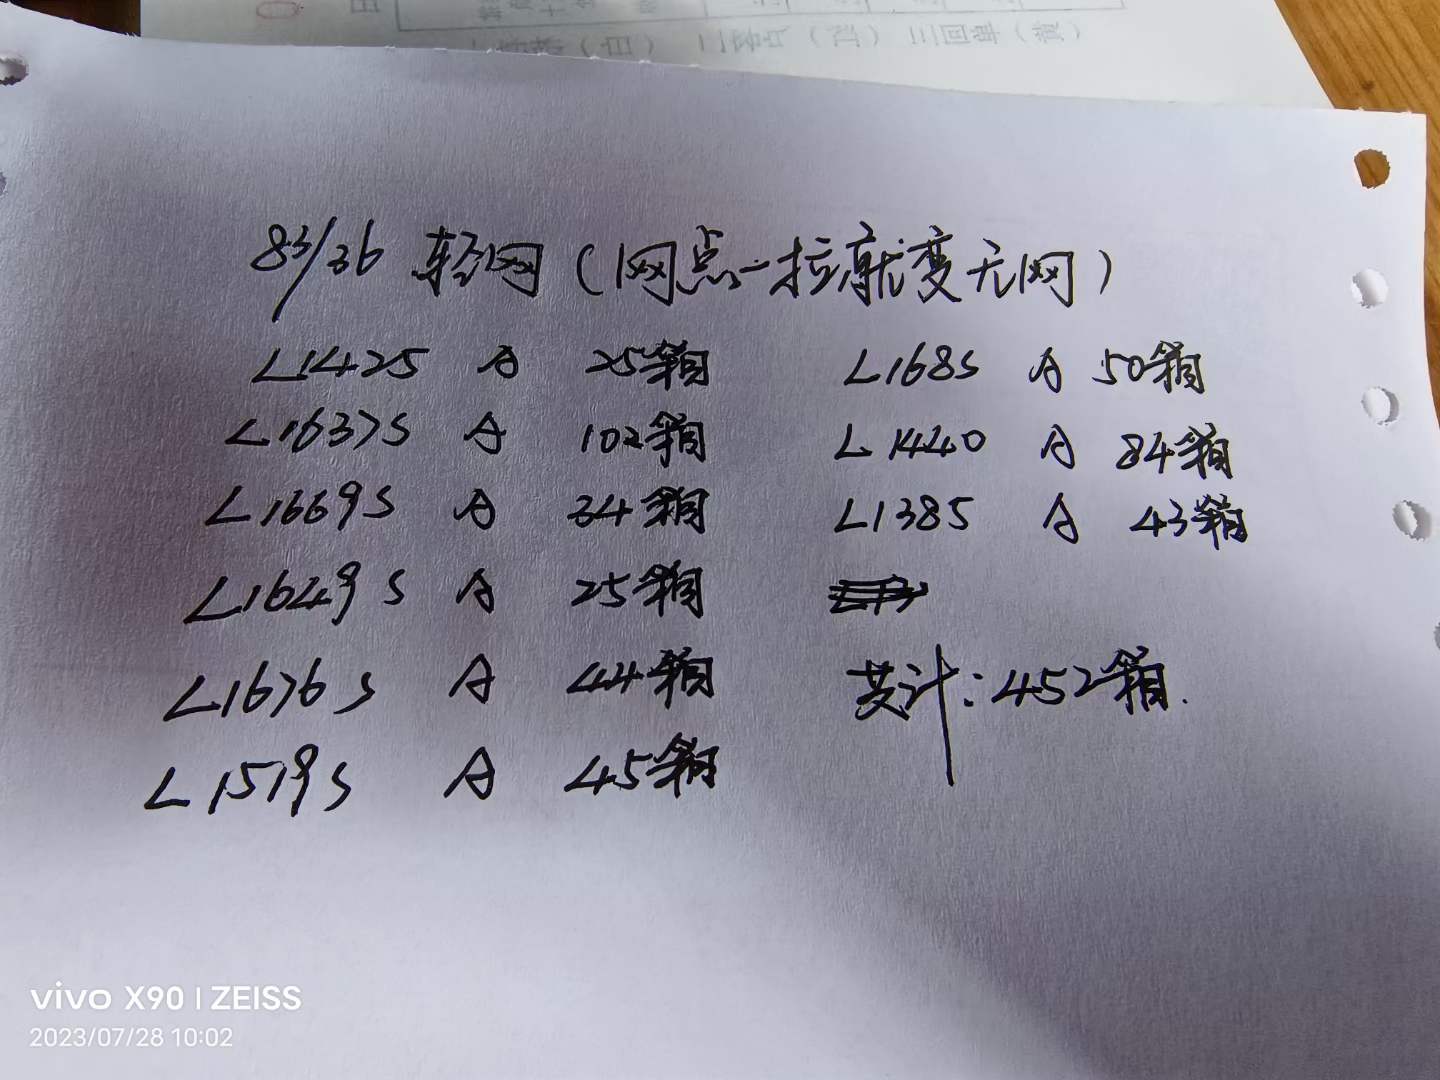 83/36 轻网（网点一拉就变无网）
L1425 A 25箱
L1637S A 102箱
L1669S A 34箱
L1649S A 25箱
L1676S A 44箱
L1519S A 45箱
L168S A 50箱
L1440 A 84箱
L1385 A 43箱
共计：452箱.
vivo X90 | ZEISS
2023/07/28 10:02